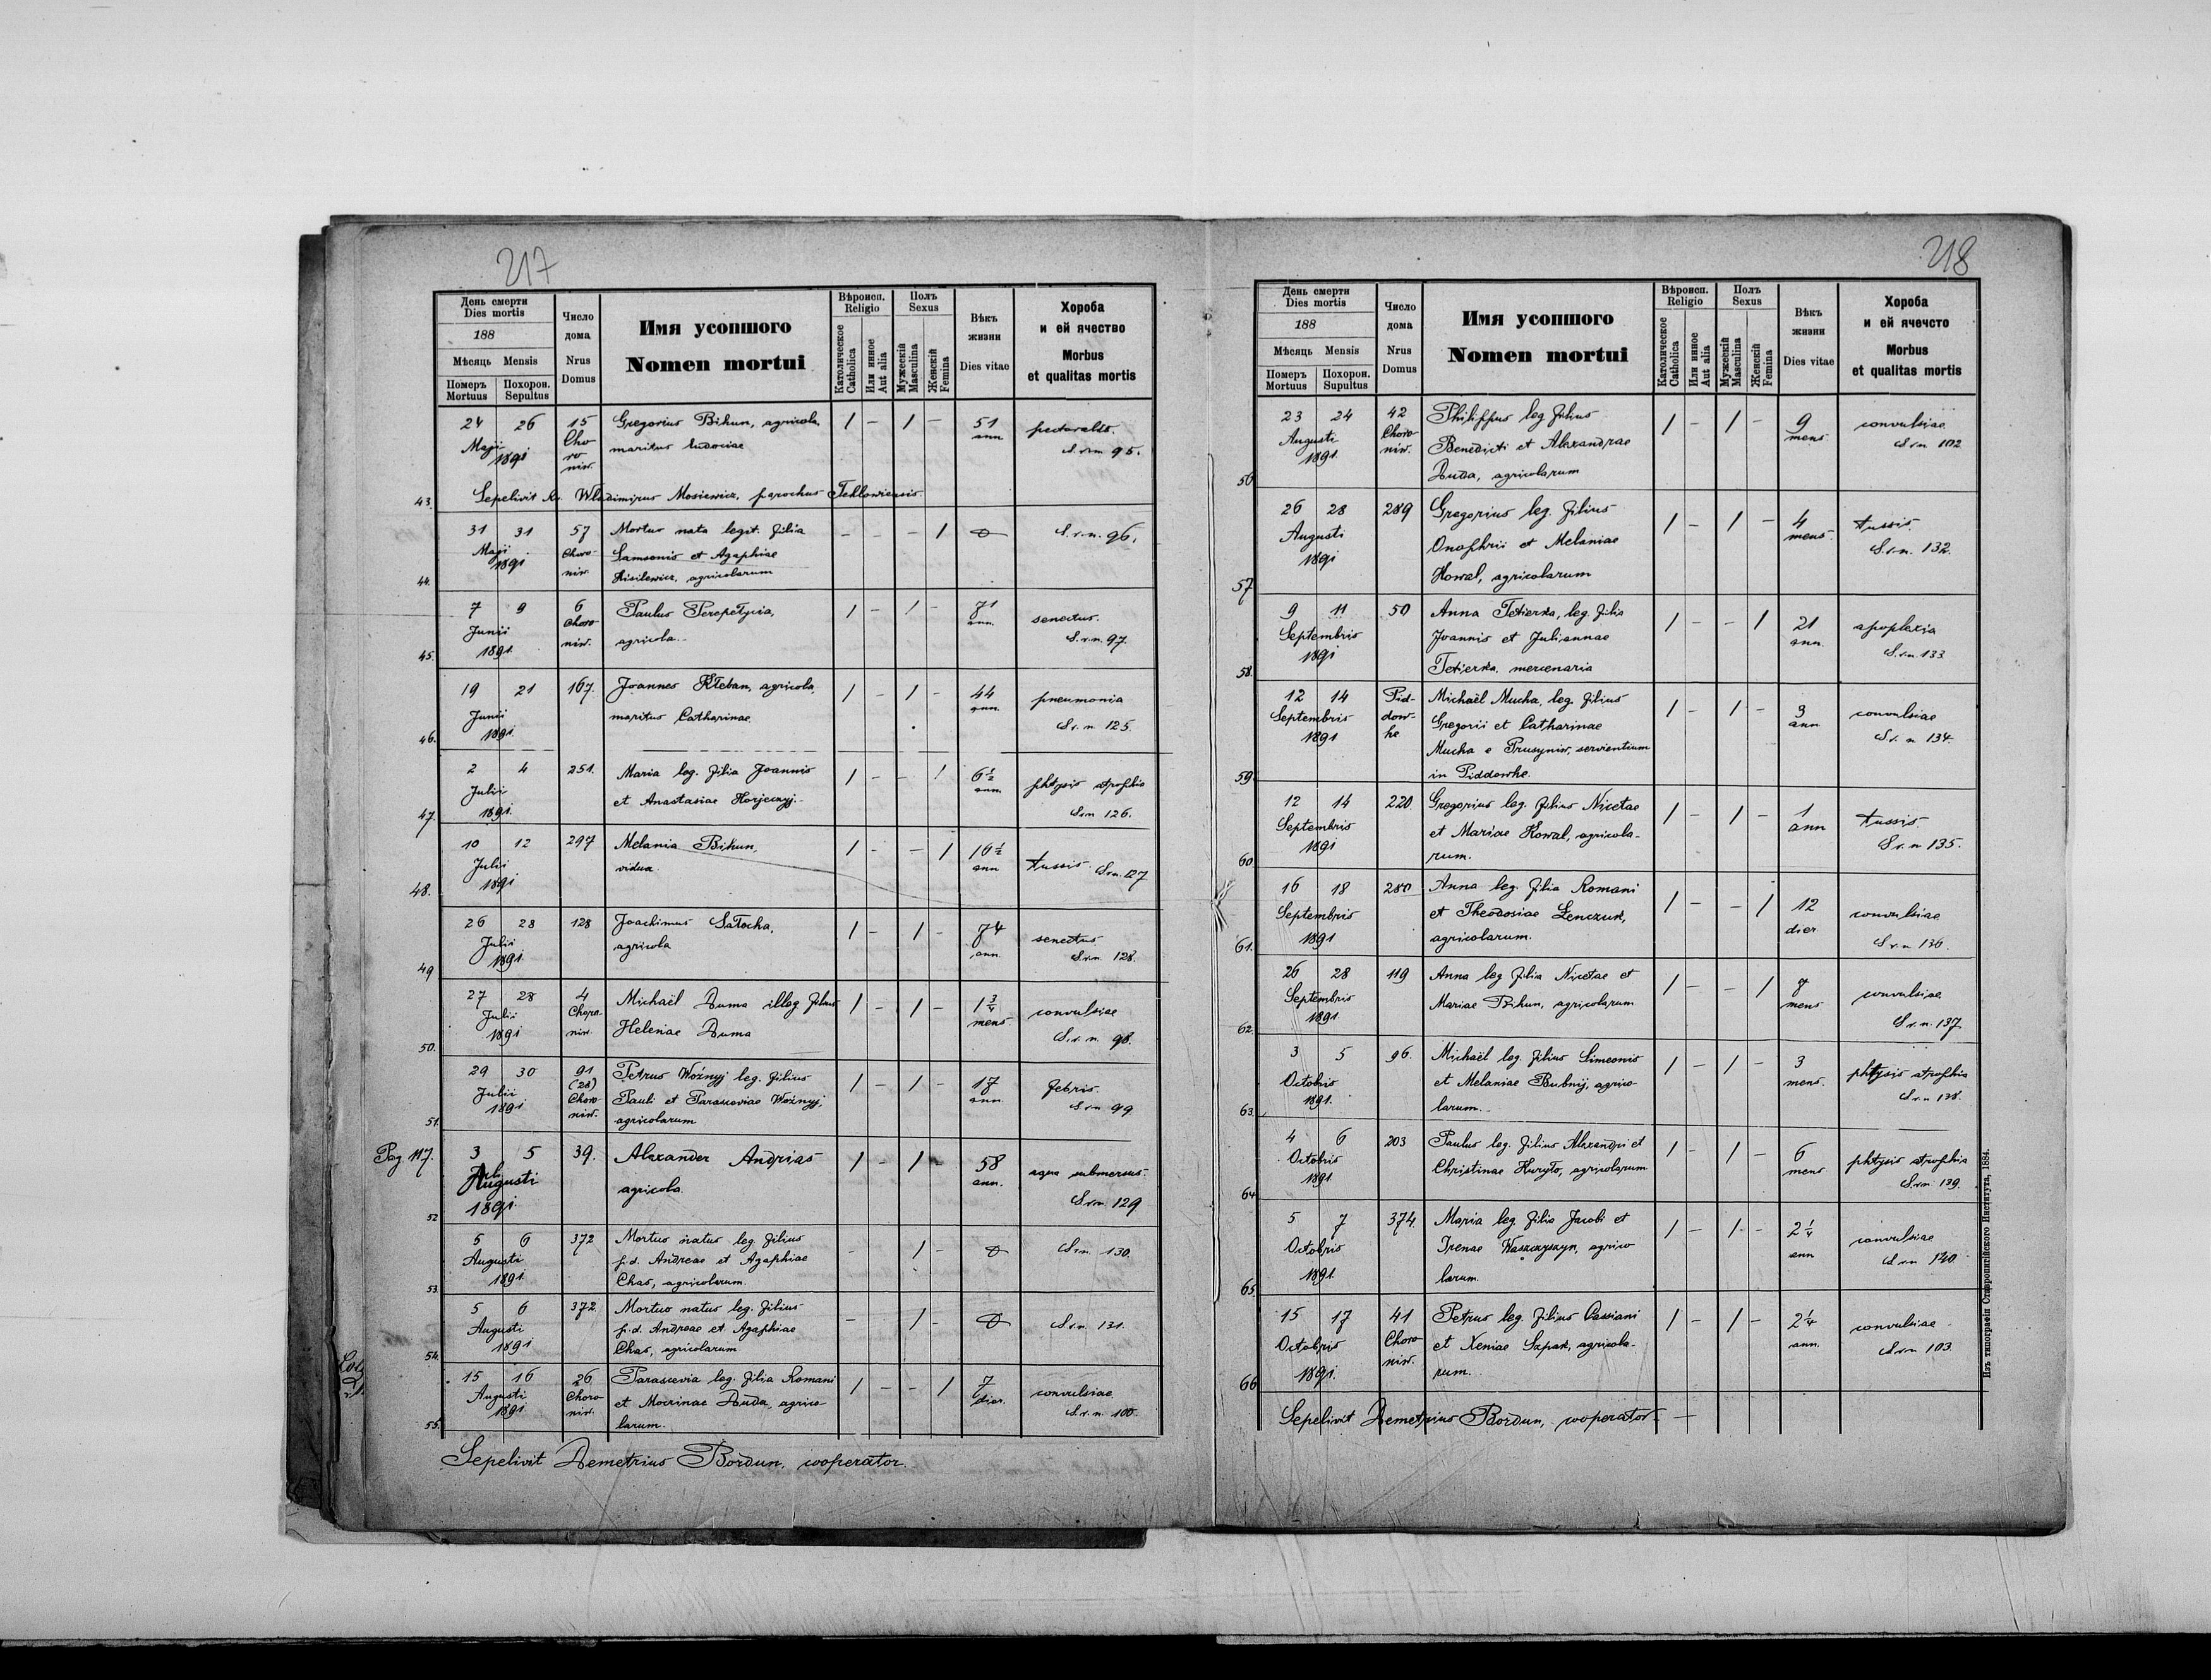 217
День смерти
Dies mortis
188
Мѣсяць Mensis
Померъ Похорон.
Mortuus Sepultus
Число
дома
Nrus
Domus
Имя усопшого
Nomen mortui
Вѣроисп.
Religio
Католическое
Catholica
Или инное
Aut alia
Полъ
Sexus
Мужескій
Masculina
Женскій
Femina
Вѣкъ
жизни
Dies vitae
Хороба
и ей ячество
Morbus
et qualitas mortis
24 26 15 Gregorius Bihun, agricola, / – / – 51 pectoralis.
Maji Cho maritus Eudociae ann. S. v. n. 95.
1891 ro
niw.
43. Sepelivit Wladimirus Mosiewicz, parochus
31 31 57 Mortuo nata legit. filia – – – / S. v. n. 96.
Maji Choro- Samsonis et Agaphiae
1891 niw.
44. agricolarum
7 9 6 Paulus Perepełycia, / – / – 71 senectus.
Junii Choro agricola. ann. S. v. n. 97.
1891 niw.
45.
19 21 167. Joannes Kłeban, agricola / – / – 44 pneumonia
Junii maritus Catharinae. ann. S. v. n 125.
1891
46.
2 4 251. Maria leg. filia Joannis / – – / 6 1/2 phtysis atrophia
Julii et Anastasiae ann. S. v. n 126.
1891.
47.
10 12 297 Melania Bihun, / – – / tussis. S. v. n. 127
Julii vidua ann
1891
48.
26 28 128 Joachimus Sałocha, / – / – 74 senectus
Julii agricola ann S. v. n. 128.
1891
49
27 28 4 Michaël Duma illeg filius / – / – 1 3/4 convulsiae
Julii Choro- Helenae Duma mens. S. v. n. 98.
1891 niw.
50.
29 30 91 Petrus Woźnyj leg. filius / – / – 17 febris.
Julii (28) Pauli et Parasceviae Woźnyj, ann. S. v. n 99
1891 Choro agricolarum
niw.
51.
Pag 117. 3 5 39. Alexander Andrias / – / – 58 aqua submersus.
Augusti agricola ann. S. v. n. 129
1891
52
5 6 372 Mortuo natus leg filius – / – S. v. n. 130.
Augusti p. d. Andreae et Agaphiae
1891 Chas, agricolarum.
53.
5 6 372 Mortuo natus leg. filius – / – S. v. n. 131.
Augusti p. d. Andreae et Agaphiae
1891 Chas, agricolarum
54.
15 16 26 Parascevia leg. filia Romani / – – / 7 convulsiae
Augusti Choro et Mocrinae Duda, agrico dier. S. v. n. 100.
1891 niw. larum.
55.
Sepelivit Demetrius Bordun, cooperator.
218
День смерти
Dies mortis
188
Мѣсяць Mensis
Померъ Похорон.
Mortuus Supultus
Число
дома
Nrus
Domus
Имя усопшого
Nomen mortui
Вѣроисп.
Religio
Католическое
Catholica
Или инное
Aut alia
Полъ
Sexus
Мужескій
Masculina
Женскій
Femina
Вѣкъ
жизни
Dies vitae
Хороба
и ей ячечсто
Morbus
et qualitas mortis
23 24 42 Philippus leg filius / – / – 9 convulsiae
Augusti Choro- Benedicti et Alexandrae mens S. v. n 102
1891. niw. Duda, agricolarum
56
26 28 289 Gregorius leg. filius / – / – 4 tussis.
Augusti Onophrii et Melaniae mens S. v. n. 132.
1891 Kowal, agricolarum
57
9 11 50 Anna Tetierka, leg. filia / – – / 21 apoplexia
Septembris Joannis et Juliannae ann. S. v. n 133
1891 Tetierka, mercenaria
58.
12 14 Pid- Michaël Mucha, leg. filius / – / – 3 convulsiae
Septembris dow- Gregorii et Catharinae ann S. v. n 134.
1891 he Mucha e Prusyniw, servientium
59. in Piddowhe.
12 14 220. Gregorius leg. filius Nicetae / – / – 1 tussis.
Septembris et Mariae Kowal, agricola- ann S. v. n 135.
1891 rum.
60
16 18 280 Anna leg. filia Romani / – – / 12 convulsiae
Septembris et Theodosiae Łenczuk, dier S. v. n 136.
1891 agricolarum.
61.
26 28 119 Anna leg filia Nicetae et / – – / mens convulsiae
Septembris Mariae Bihun, agricolarum S. v. n. 137
1891.
62.
3 5 96. Michaël leg. filius Simeonis / – / – 3 phtysis atrophia
Octobris et Melaniae Bubnij, agrico mens. S. v. n 138.
1891. larum.
63.
4 6 203 Paulus leg. filius Alexandri et / – / – 6 phtysis atrophia
Octobris Christinae Kuryło, agricolarum mens S. v. n. 139.
1891
64
5 7 374. Maria leg. filia Jacobi et / – / – 2 1/4 convulsiae
Octobris Irenae Waszczyszyn, agrico ann S. v. n 140.
1891 larum.
65.
15 17 41 Petrus leg. filius Cassiani / – / – 2 1/4 convulsiae
Octobris Choro- et Xeniae Szpak, agricola- ann. S. v. n 103.
1891 niw. rum.
66
Sepelivit Demetrius Bordun, cooperator. –
Изъ типографіи Ставропигійского Института, 1884.